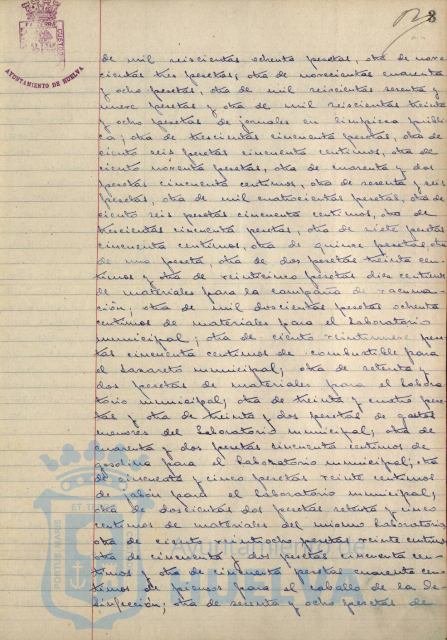 AYUNTAMIENTO DE HUELVA
8
de mil seiscientas ochenta pesetas, otra de nove-
cientas tres pesetas, otra de novecientas cuarenta
y ocho pesetas, otra de mil seiscientas setenta y
nueve pesetas y otra de mil seiscientas treinta
y ocho pesetas de jornales en limpieza públi-
ca; otra de trescientas cincuenta pesetas, otra de
ciento seis pesetas cincuenta centimos, otra de
ciento noventa pesetas, otra de cuarenta y dos
pesetas cincuenta centimos, otra de sesenta y seis
pesetas, otra de mil cuatrocientas pesetas, otra de
ciento seis pesetas cincuenta centimos, otra de
trescientas cincuenta pesetas, otra de siete pesetas
cincuenta centimos, otra de quince pesetas, otra
de una peseta, otra de dos pesetas treinta cen-
timos y otra de veinticinco pesetas diez centimos
de materiales para la campaña de vacuna-
ción; otra de mil doscientas pesetas ochenta
centimos de materiales para el Laboratorio
municipal; otra de ciento veintinueve pese-
tas cincuenta centimos de combustible para
el Lazareto municipal; otra de setenta y
dos pesetas de materiales para el Labora-
torio municipal; otra de treinta y cuatro pese-
tas y otra de treinta y dos pesetas de gastos
menores del Laboratorio municipal; otra de
cuarenta y dos pesetas cincuenta centimos de
gasolina para el Laboratorio municipal; otra
de cincuenta y cinco pesetas veinte centimos
de jabón para el Laboratorio municipal;
otra de doscientas dos pesetas setenta y cinco
centimos de materiales del mismo Laboratorio
otra de ciento veintiocho pesetas veinte centimos
otra de cincuenta y dos pesetas cincuenta cen-
timos y otra de cincuenta pesetas cuarenta cen-
timos de piensos para el caballo de la De-
sinfección; otra de sesenta y ocho pesetas de
HUELVA